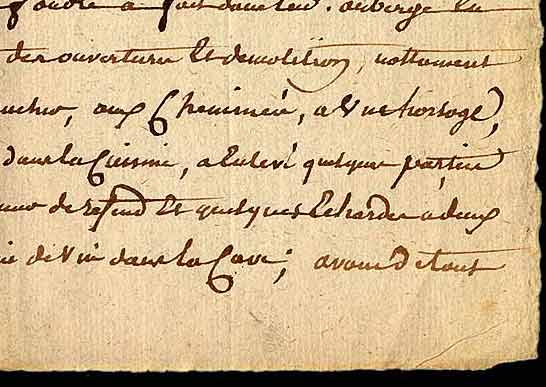 foudre a fait dans led. auberge la
des ouvertures Et demolition, nottament
aux Cheminées, a Vne horloge,
dans la Cuisine, a Enlevé quelques parties
de refend Et quelques Echardes a deux
de Vin dans la Cave; avons De tout